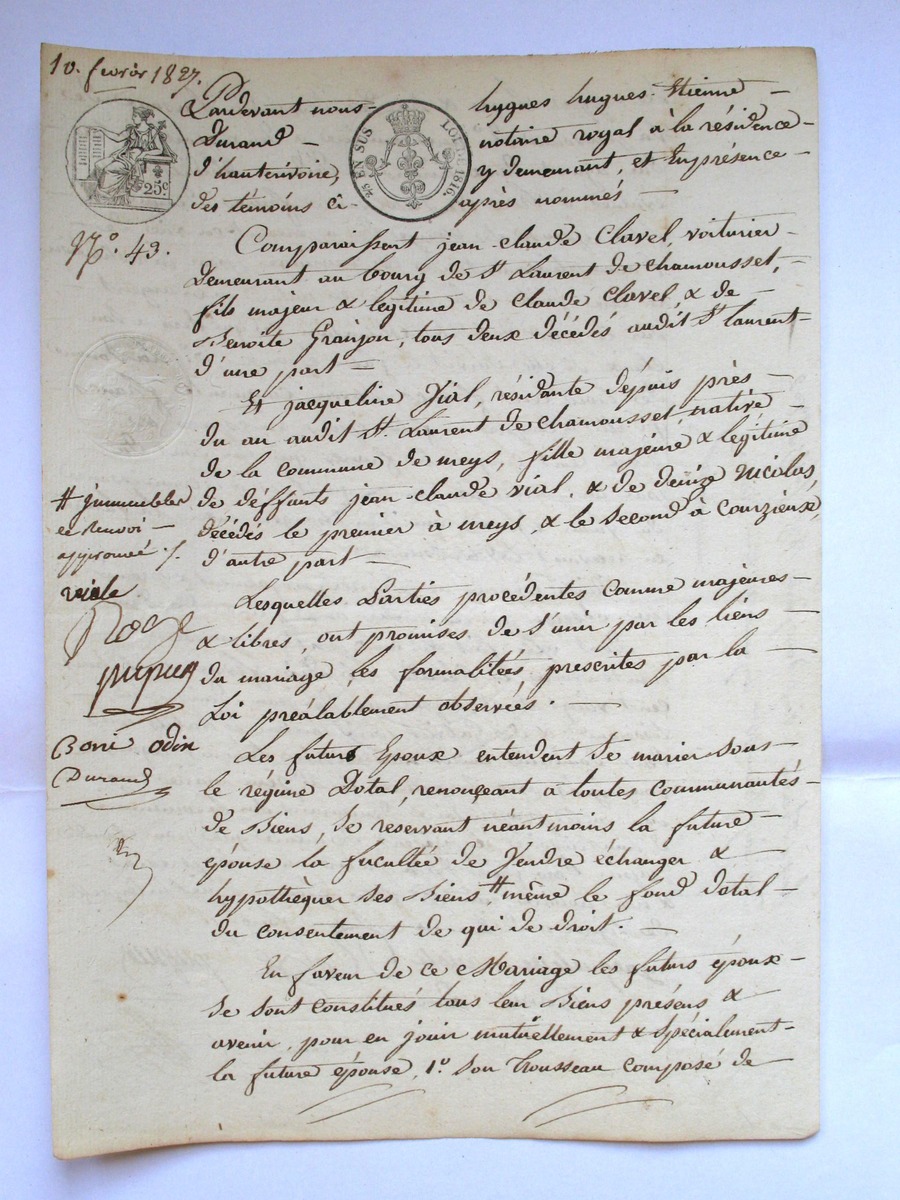 10. fevrier 1827.
Pardevant nous hygues hugues Etienne
Durand notaire royal à la résidence
d'hauterivoire, y demeurant, et Enprésence
des témoins ci-après nommés
25 EN SUS LOI DE 1816.
25c
N.° 43.
Comparaissent jean-claude Clavel, voiturier
demeurant au bourg de St Laurent de chamousset,
fils majeur & légitime de Claude Clavel, & de
Benoite Granjon, tous deux décédés audit St laurent
d'une part
Et jacqueline Vial, résidante depuis près
du an audit St. Laurent de chamousset native
de la commune de meys, fille majeure & légitime
de déffants jean-claude vial, & de denize Nicolas,
décédés le premier à meys, & le second à Courzieux,
d'autre part
Lesquelles Parties procédentes comme majeures
& libres, ont promises de s'unir par les liens
du mariage, les formalitées prescrites par la
Loi préalablement observées.
Les futurs Epoux entendent se marier sous
le régime Dotal, renonçant a toutes communautés
de Biens, se reservant néantmoins la future
épouse la facultée de Vendre échanger &
hypothèquer ses Biens # même le fond dotal
du consentement de qui de droit.
En faveur de ce Mariage les futurs époux
se sont constitués tous leur Biens présens &
avenir, pour en jouir mutuellement & spécialement
la future épouse, 1.° son trousseau composé de
# jmmeubles
ce renvoi
approuvé
viale
Boni odin
Durand